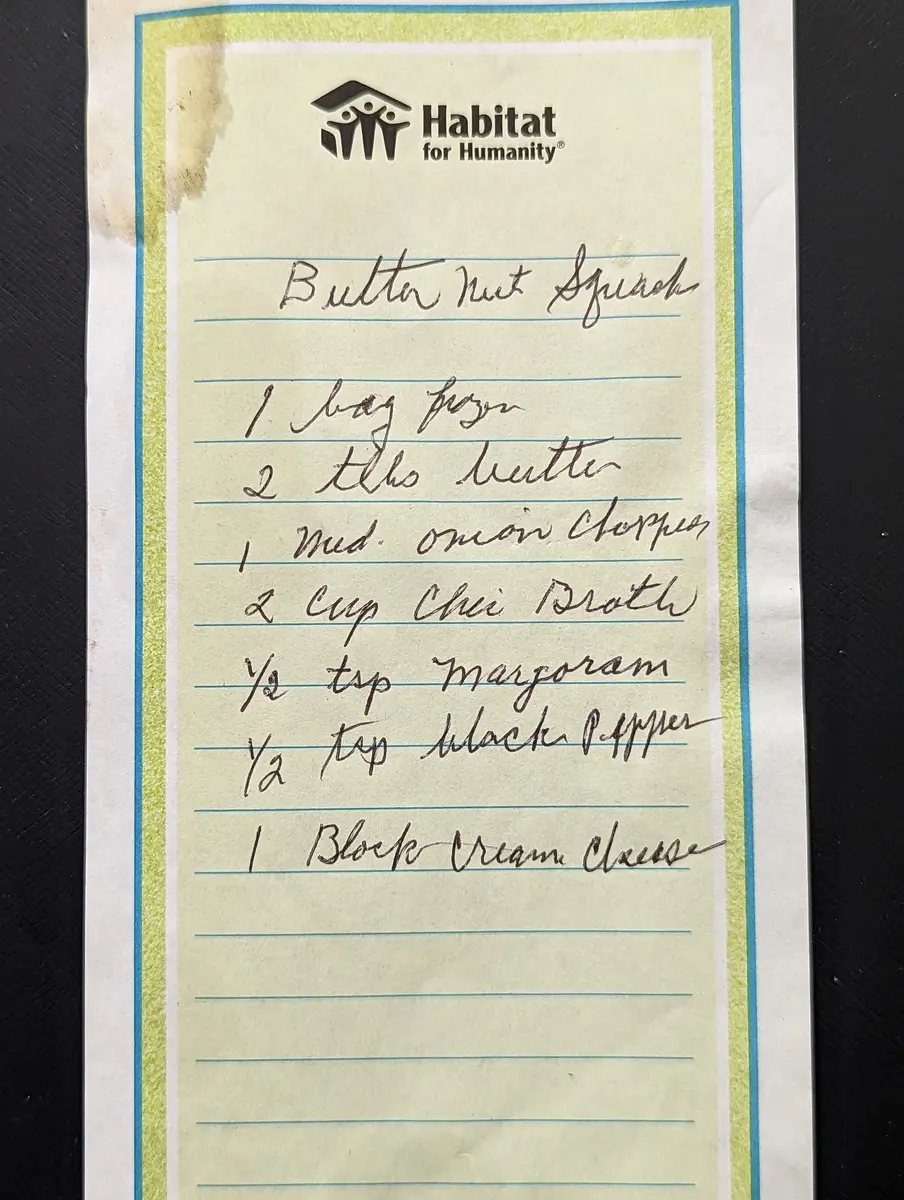 Habitat
for Humanity®
Butter Nut Squash
1 bag frozen
2 tbls butter
1 Med. onion Chopped
2 Cup Chic Broth
1/2 tsp Margoram
1/2 tsp black Pepper
1 Block Cream Cheese